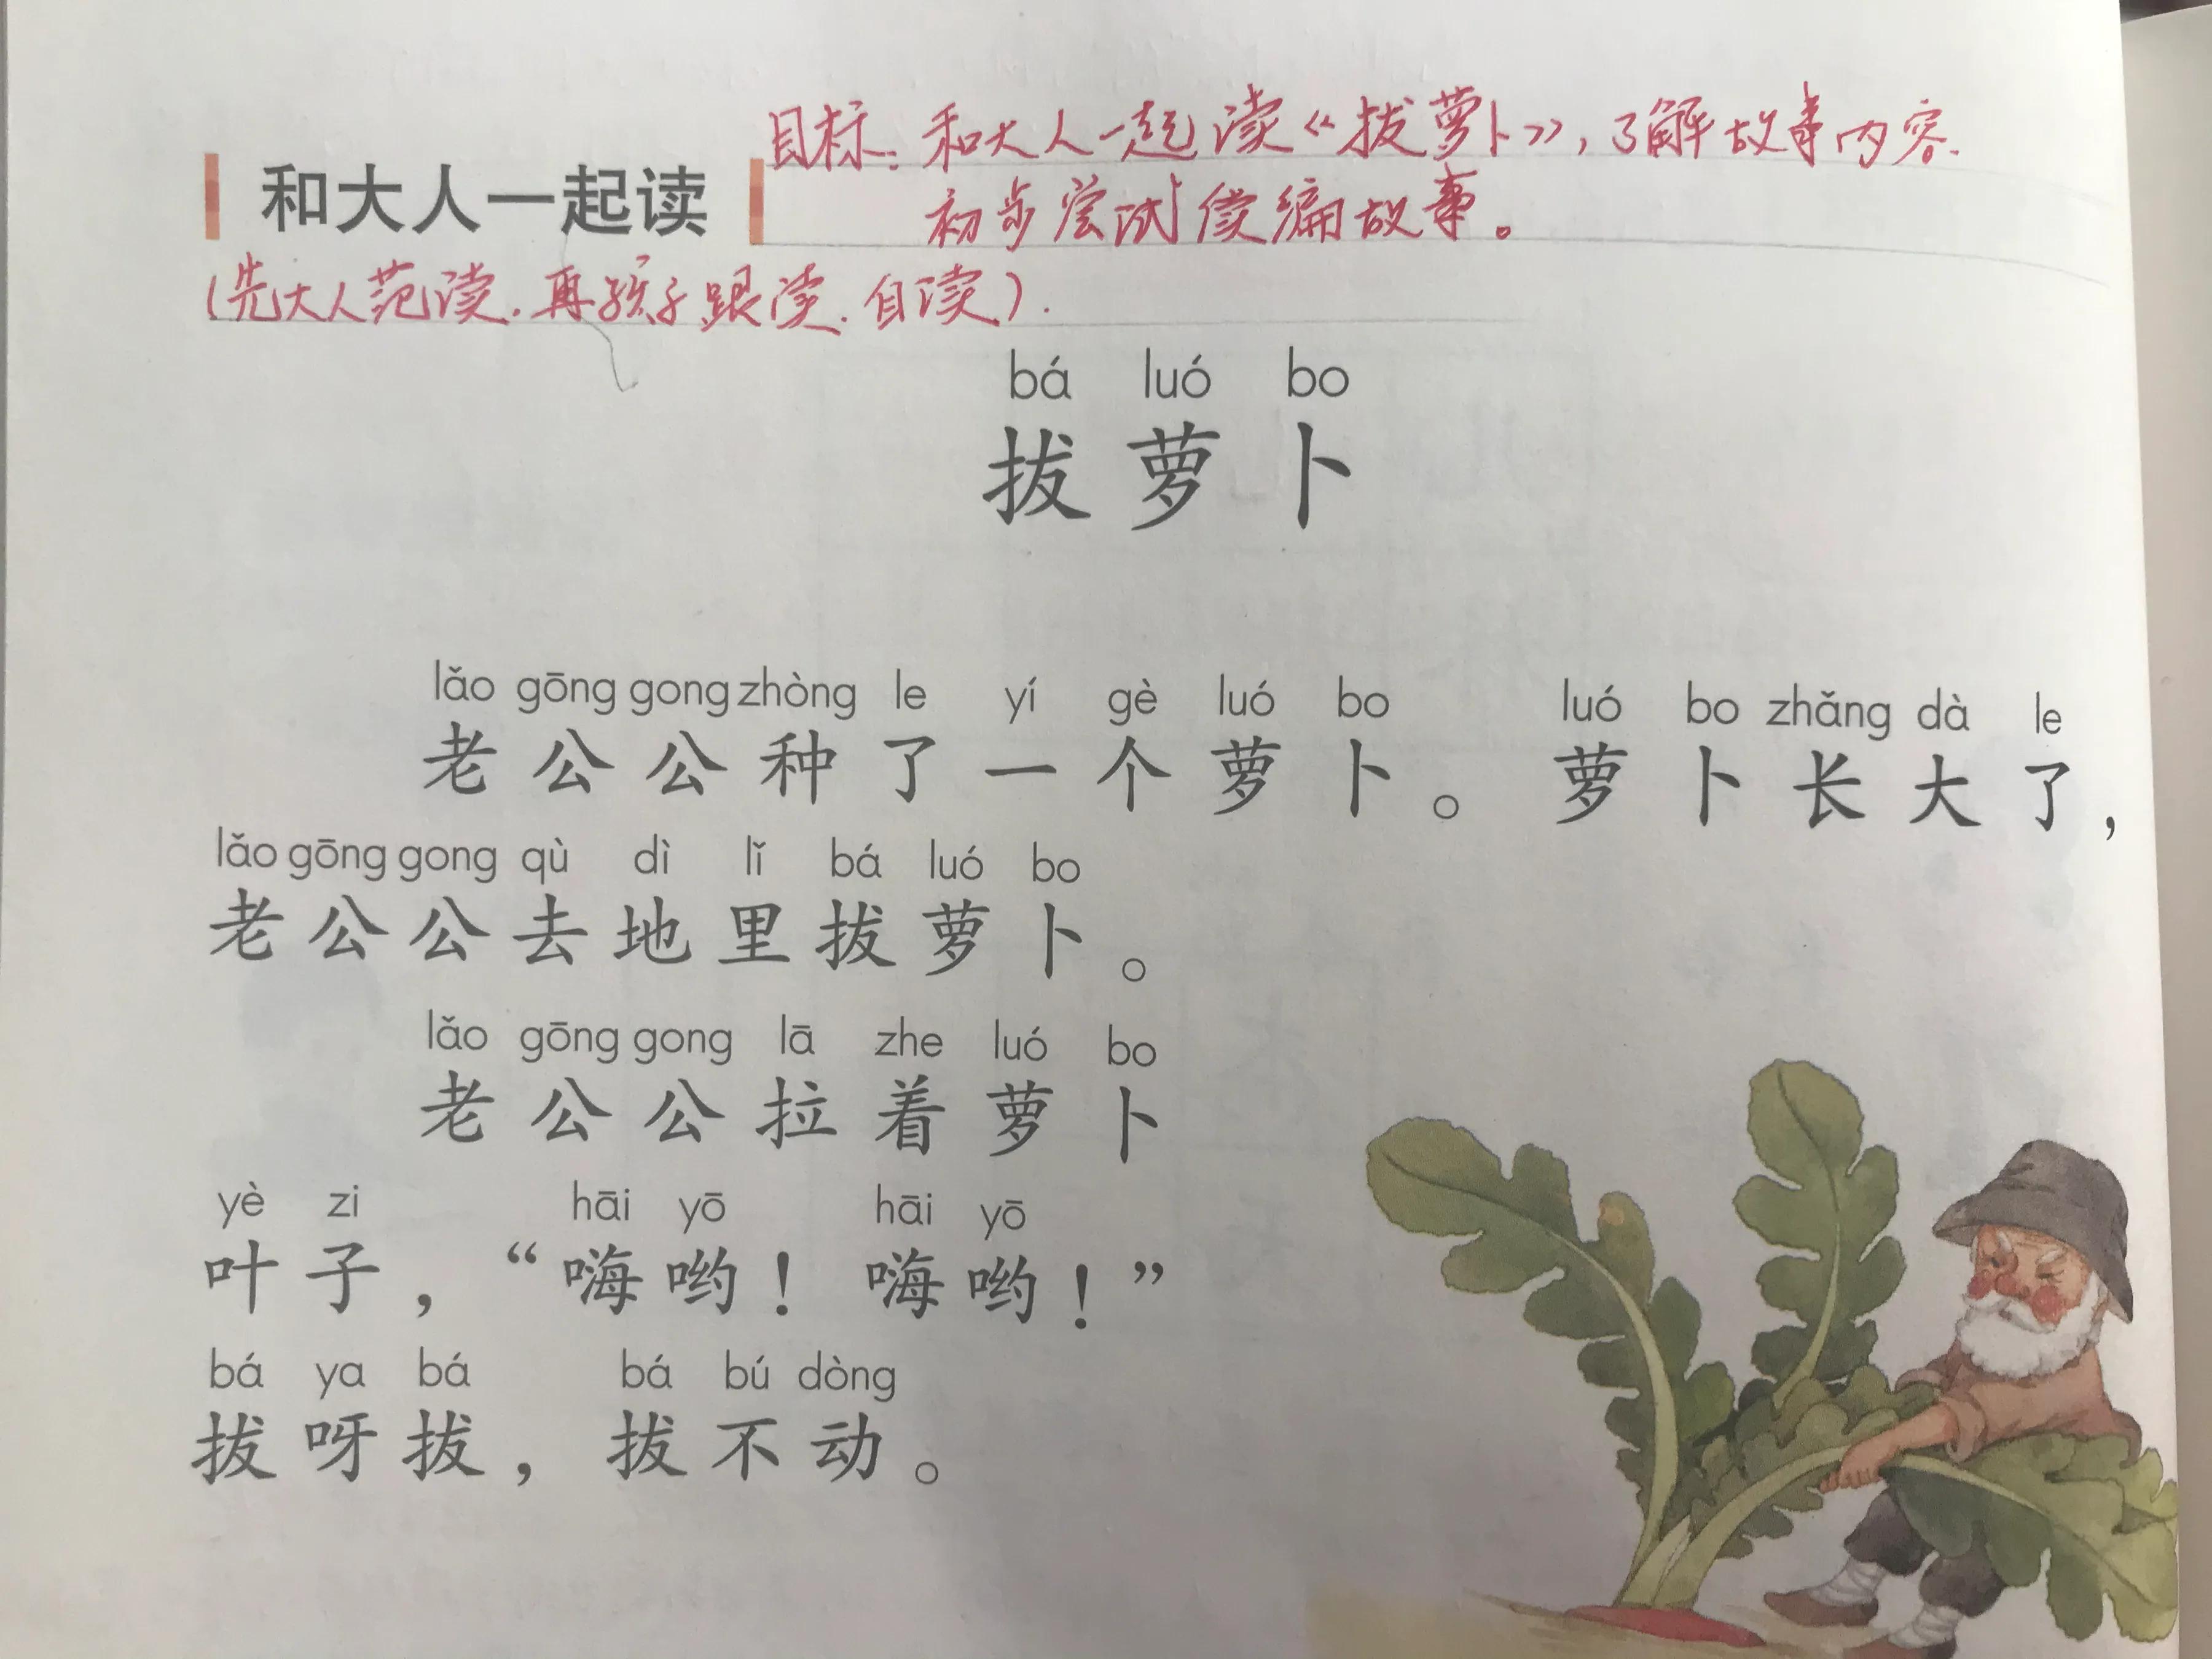 目标：和大人一起读《拔萝卜》，了解故事内容.
和大人一起读
初步尝试续编故事。
(先大人范读.再孩子跟读.自读).
bá luó bo
拔萝卜
lǎo gōng gong zhòng le yí gè luó bo luó bo zhǎng dà le
老公公种了一个萝卜。萝卜长大了，
lǎo gōng gong qù dì lǐ bá luó bo
老公公去地里拔萝卜。
lǎo gōng gong lā zhe luó bo
老公公拉着萝卜
yè zi hāi yō hāi yō
叶子，“嗨哟！嗨哟！”
bá ya bá bá bú dòng
拔呀拔，拔不动。